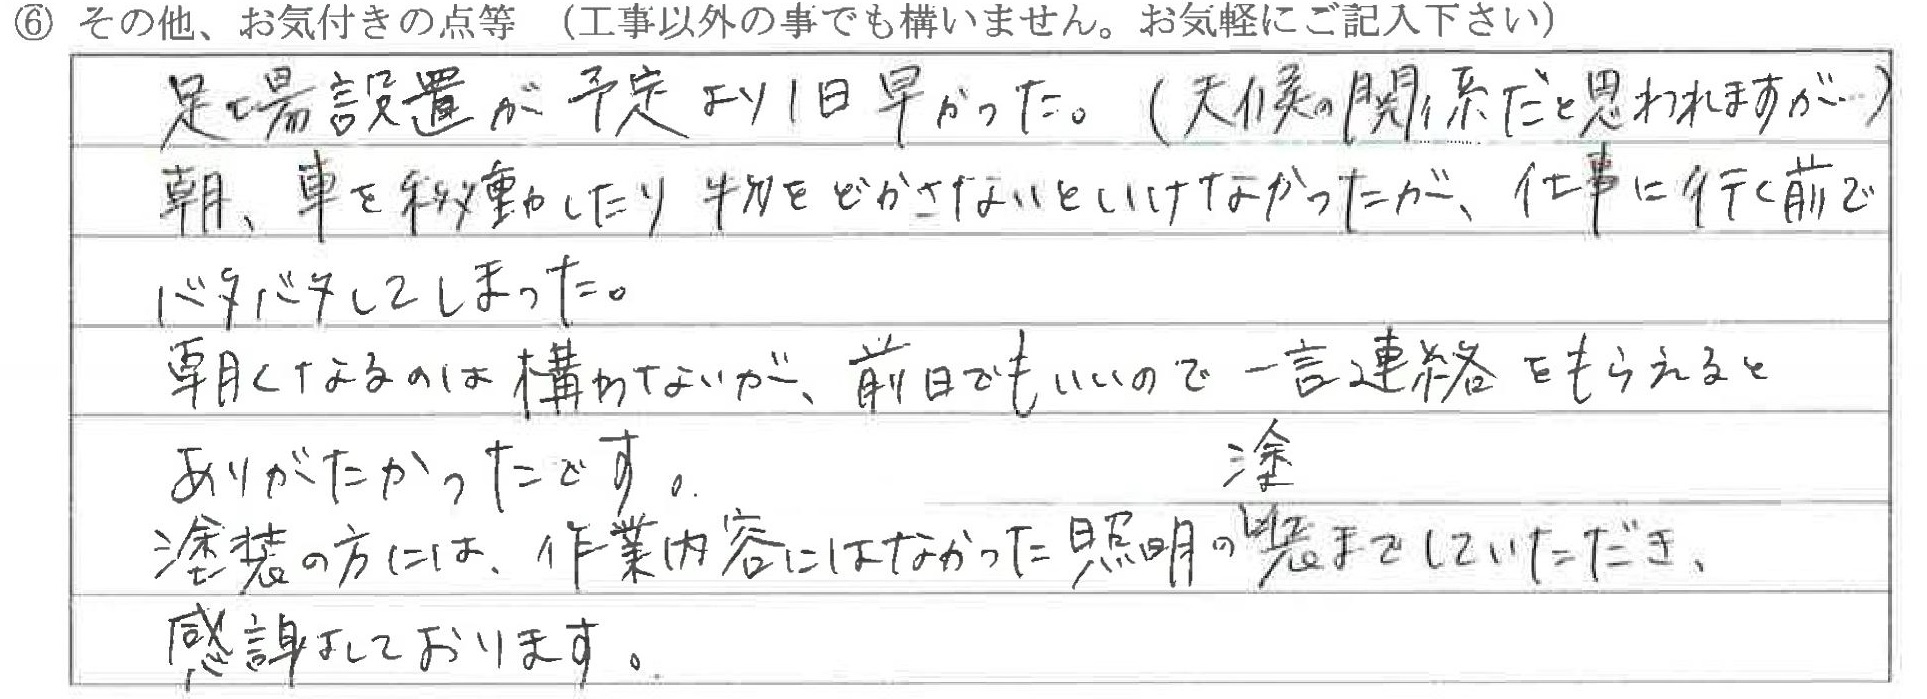 ⑥ その他、お気付きの点等 （工事以外の事でも構いません。お気軽にご記入下さい）
足場設置が予定より1日早かった。（天候の関係だと思われますが…）
朝、車を移動したり物をどかさないといけなかったが、仕事に行く前で
バタバタしてしまった。
朝くなるのは構わないが、前日でもいいので一言連絡をもらえると
ありがたかったです。
塗
塗装の方には、作業内容にはなかった照明の装までしていただき、
感謝しております。